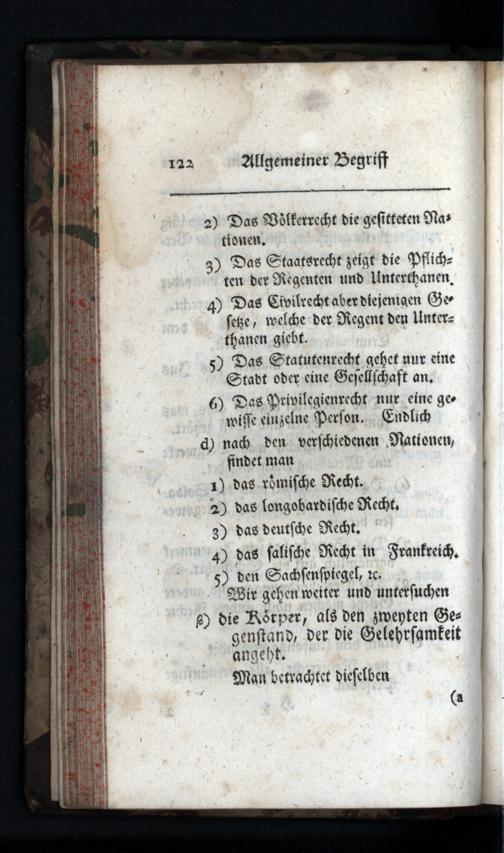 122 Allgemeiner Begriff
2) Das Völkerrecht die gesitteten Na-
tionen.
3) Das Staatsrecht zeigt die Pflich-
ten der Regenten und Unterthanen.
4) Das Civilrecht aber diejenigen Ge-
setze, welche der Regent den Unter-
thanen giebt.
5) Das Statutenrecht gehet nur eine
Stadt oder eine Gesellschaft an.
6) Das Privilegienrecht nur eine ge-
wisse einzelne Person. Endlich
d) nach den verschiedenen Nationen,
findet man
1) das römische Recht.
2) das longobardische Recht.
3) das deutsche Recht.
4) das salische Recht in Frankreich.
5) den Sachsenspiegel, ꝛc.
Wir gehen weiter und untersuchen
β) die Körper, als den zweyten Ge-
genstand, der die Gelehrsamkeit
angeht.
Man betrachtet dieselben
(a